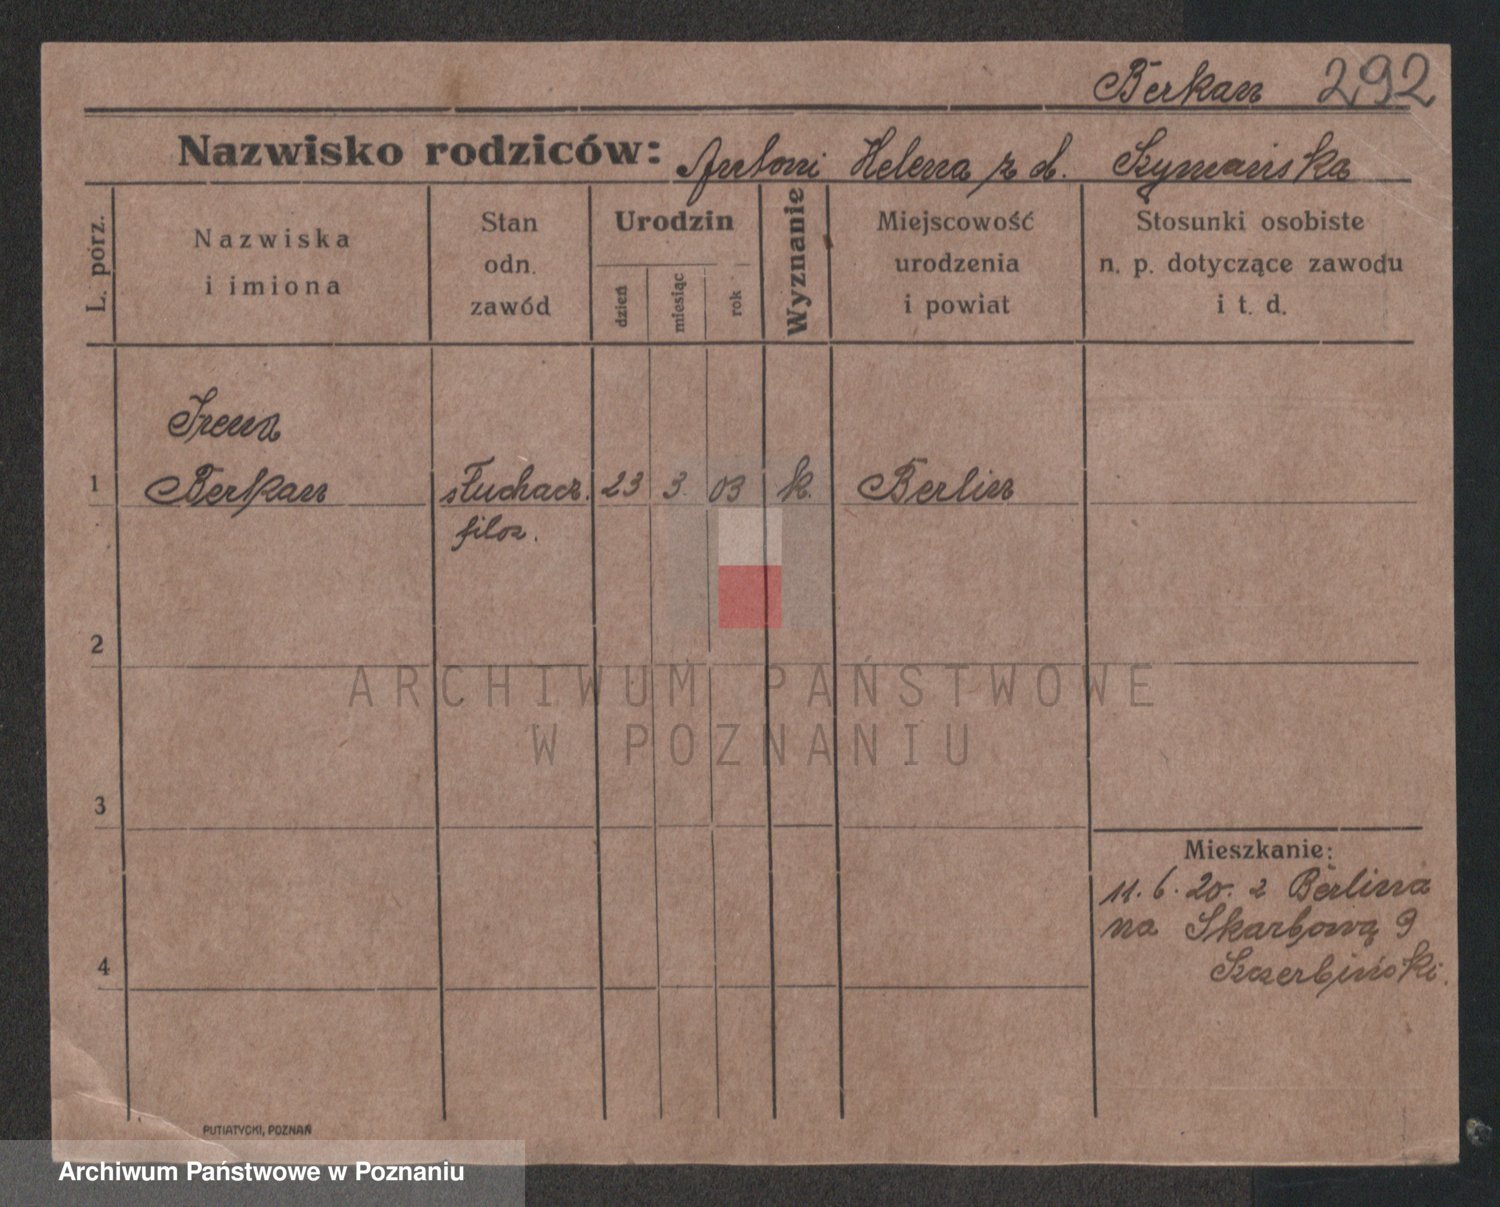 Berkan 292
Nazwisko rodziców: Antoni Helena z d. Szymańska
L. porz.
Nazwiska
i imiona
Stan
odn.
zawód
Urodzin
dzień
miesiąc
rok
Wyznanie
Miejscowość
urodzenia
i powiat
Stosunki osobiste
n. p. dotyczące zawodu
i t. d.
Irena
1 Berkan słuchacz. 23 3. 03 k. Berlin
filoz.
2
ARCHIWUM PAŃSTWOWE
W POZNANIU
3
Mieszkanie:
11. 6. 20. z Berlina
na Skarbową 9
4 Szczerbiński.
PUTIATYCKI, POZNAŃ
Archiwum Państwowe w Poznaniu